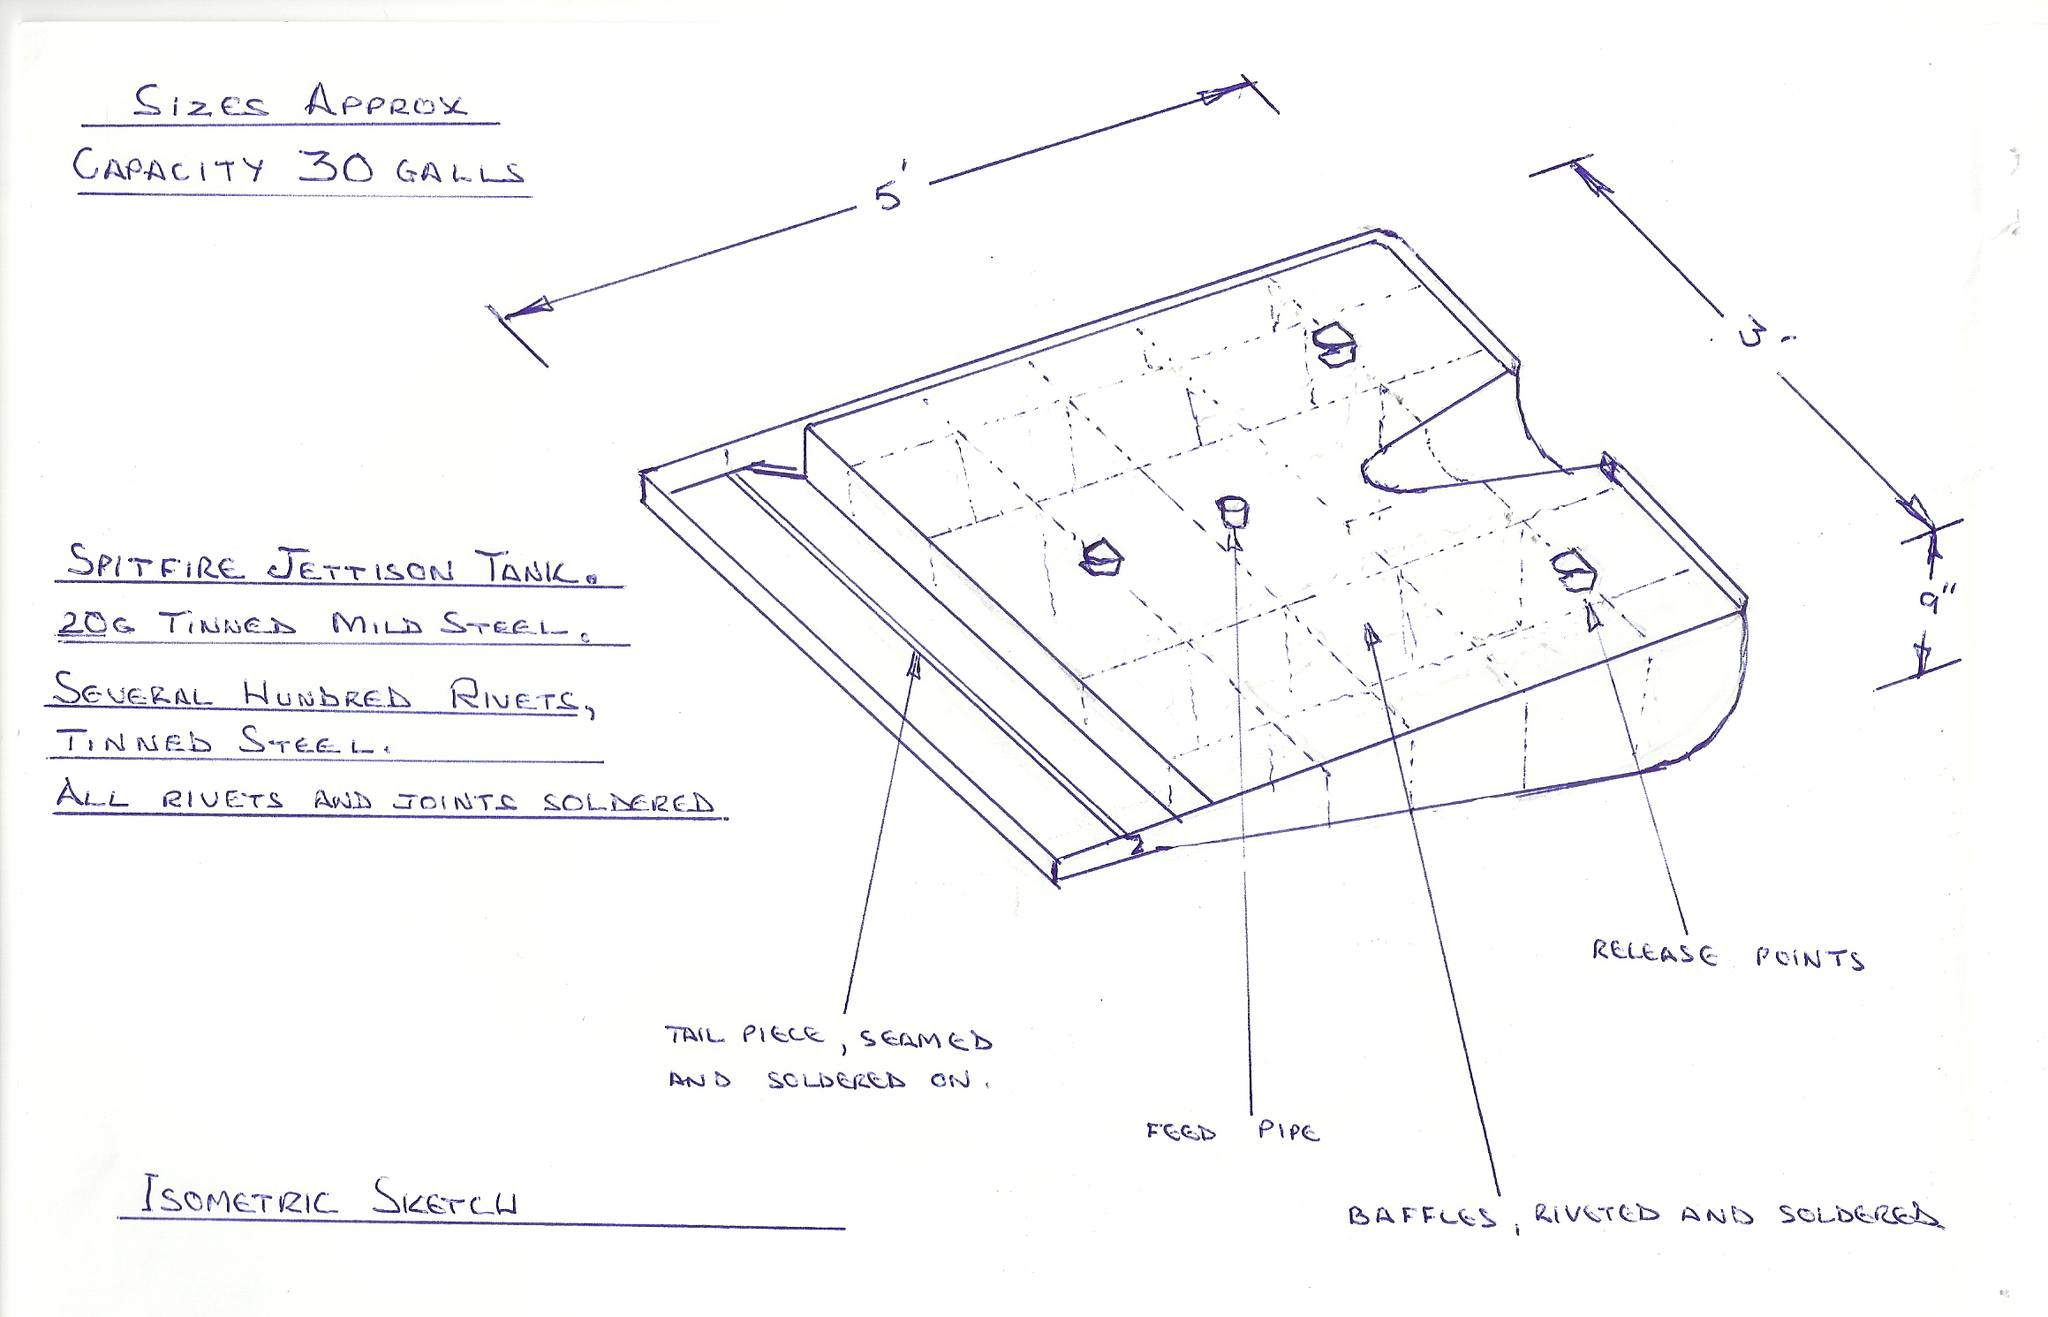 SIZES APPROX
CAPACITY 30 GALLS
5'
3'
9"
SPITFIRE JETTISON TANK.
20G TINNED MILD STEEL.
SEVERAL HUNDRED RIVETS,
TINNED STEEL.
ALL RIVETS AND JOINTS SOLDERED
RELEASE POINTS
TAIL PIECE, SEAMED
AND SOLDERED ON.
FEED PIPE
BAFFLES, RIVETED AND SOLDERED
ISOMETRIC SKETCH